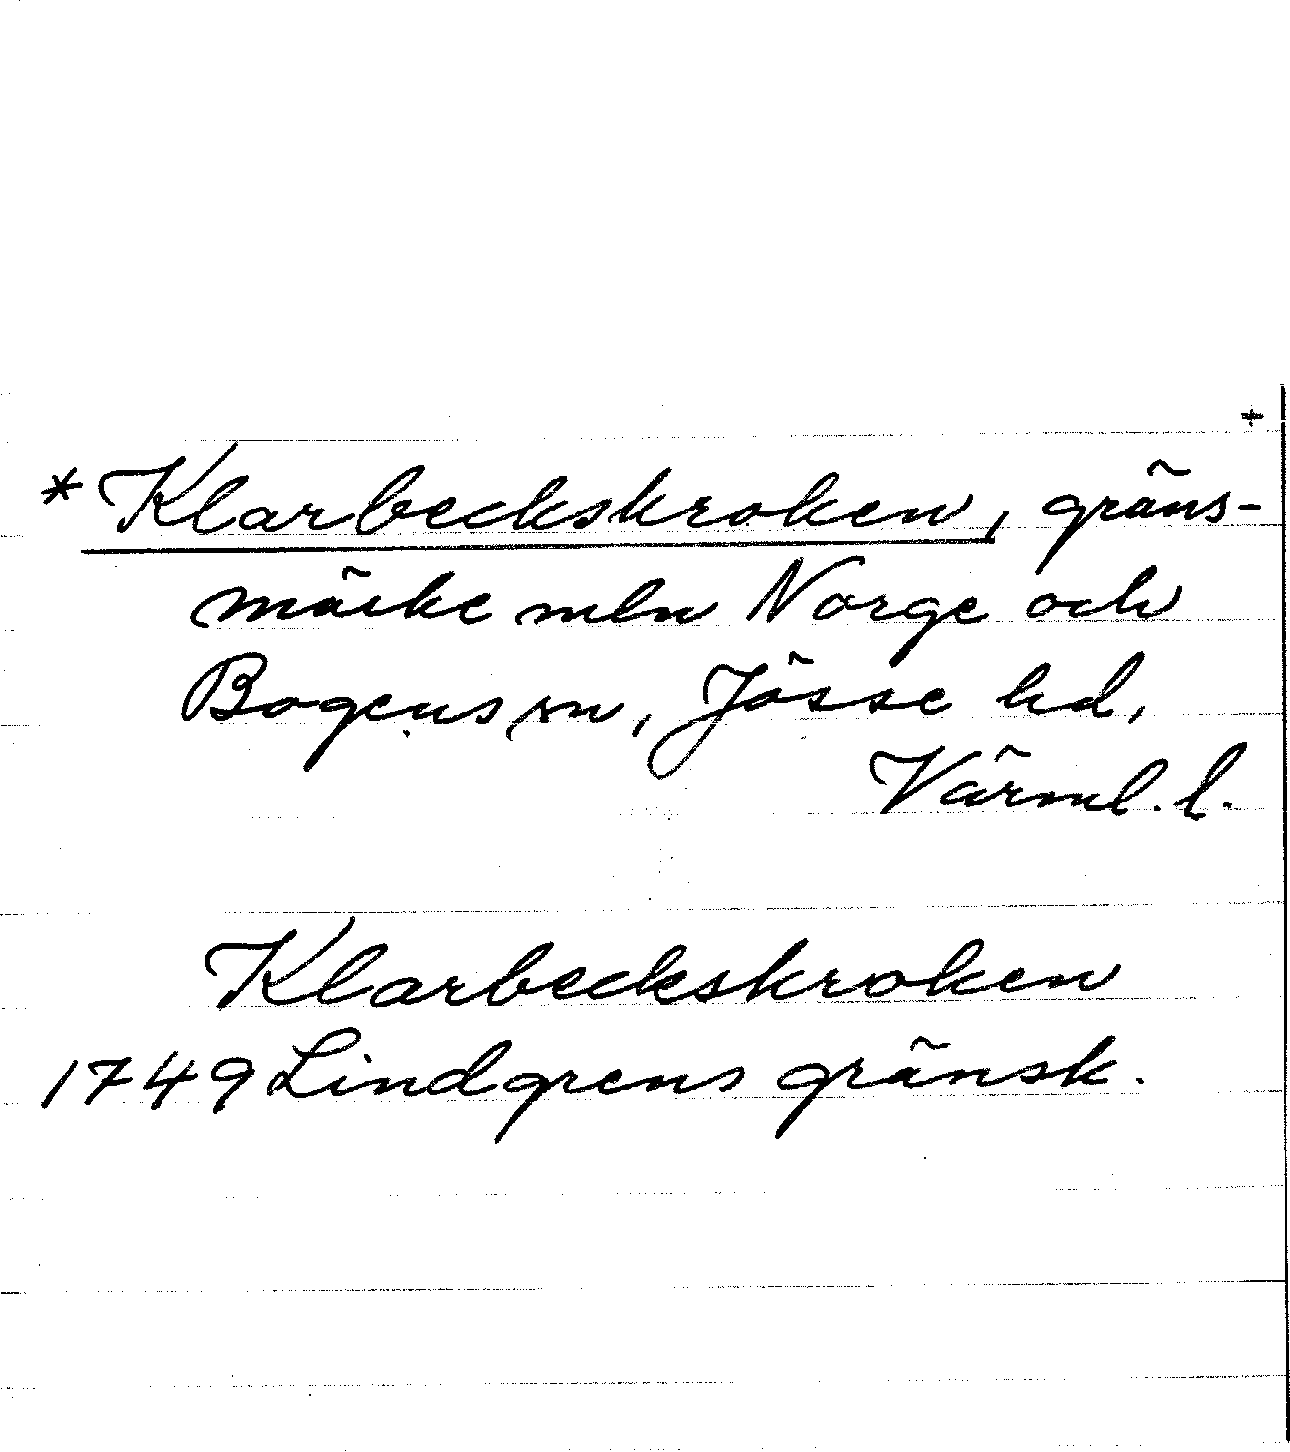 +
* Klarbeckskroken, gräns-
märke mln Norge och
Bogens sn, Jösse hd,
Värml. l.
Klarbeckskroken
1749 Lindgrens gränsk.